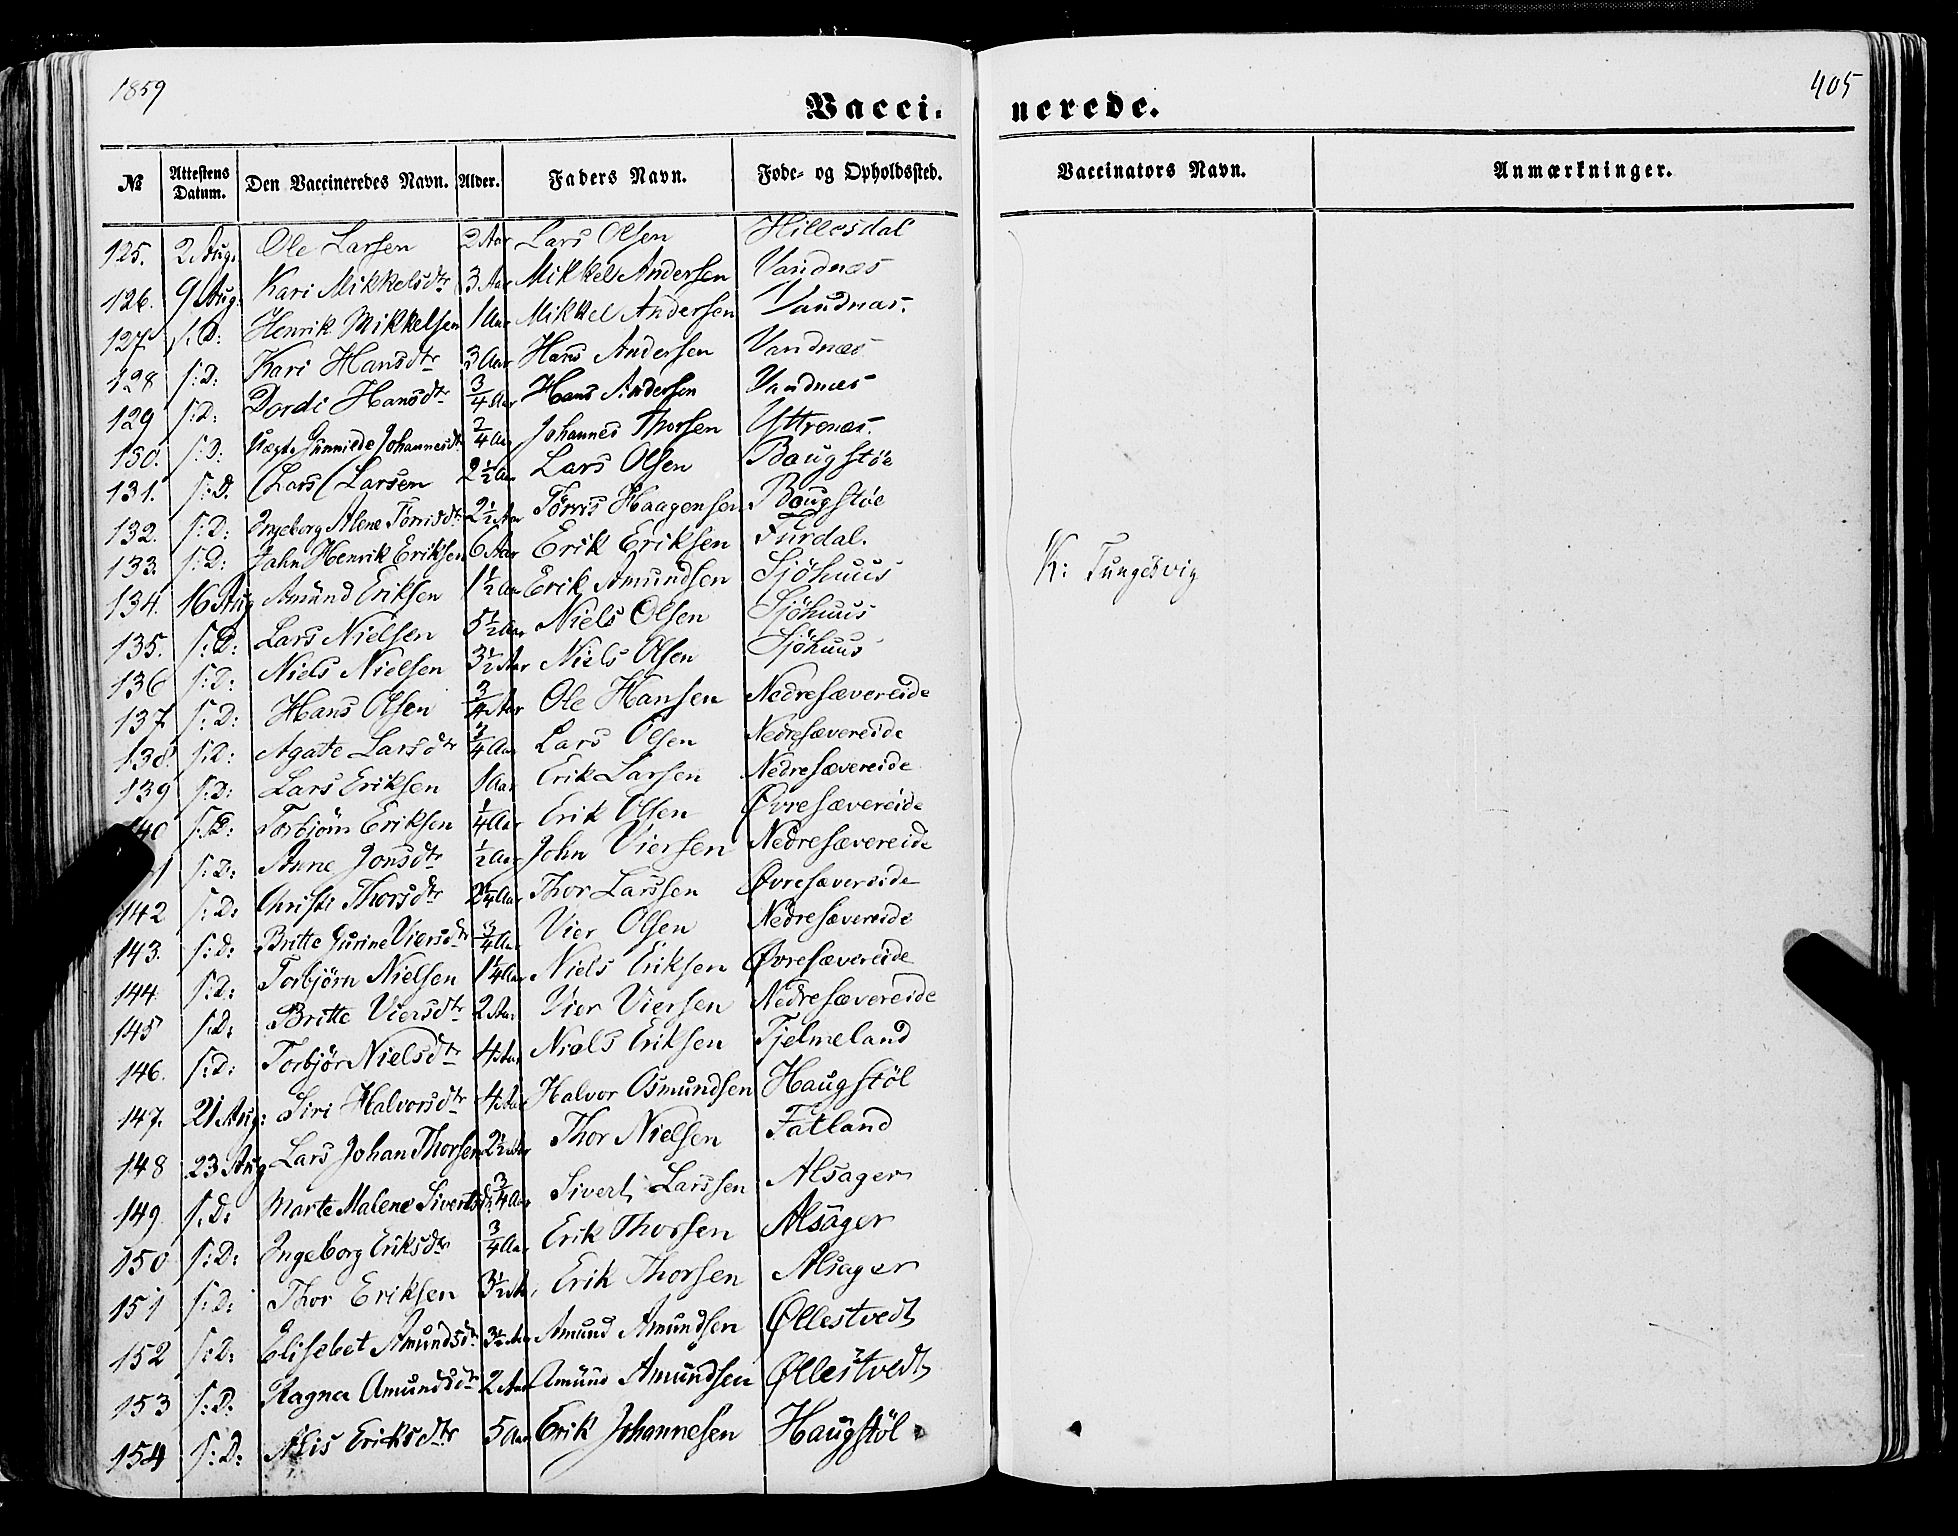 1859
405
Vacci- nerede.
№ Attestens Datum. Den Vaccineredes Navn. Alder. Faders Navn. Føde- og Opholdssted. Vaccinators Navn. Anmærkninger.
125. 2 Aug. Ole Larsen 2 Aar Lars Olsen Hillesdal
126. 9 Aug. Kari Mikkelsdtr 3 Aar Mikkel Andersen Vandnæs
127 s:D: Henrik Mikkelsen 1 Aar Mikkel Andersen Vandnæs.
128 s:D: Kari Hansdtr 3 Aar Hans Andersen Vandnæs
129 s:D: Dordi Hansdtr 3/4 Aar Hans Andersen Vandnæs
130. s:D: Johannesdtr Johannes Thorsen Yttrenæs.
131. s:D. Lars Larsen 2 1/2 Aar Lars Olsen Baugstøe
132. s:D: Ingeborg Alene Tørrisdtr 2 1/2 Aar Tørris Haagensen Baugstøe
133 s:D: John Henrik Eriksen 6 Aar Erik Eriksen Furdal.
134. 16 Aug Amund Eriksen 1 1/2 Aar Erik Amundsen Sjöhuus
135. s:D: Lars Nielsen 5 1/2 Aar Niels Olsen Sjöhuus
136 s:D: Niels Nielsen 3 1/2 Aar Niels Olsen Sjöhuus
137 s:D: Hans Olsen 3/4 Aar Ole Hansen Nedresævereide
138 s:D: Agate Larsdtr 3/4 Aar Lars Olsen Nedresævereide
139 s:D: Lars Eriksen 1 Aar Erik Larsen Nedresævereide
140 s:D: Torbjörn Eriksen 1/4 Aar Erik Olsen Øvresævereide
1 s:D: Anne Jonsdtr 1/2 Aar John Viersen Nedresævereide
142 s:D: Christi Thorsdtr 2 1/4 Aar Thor Larssen Øvresævereide
143. s:D: Britte Gurine Viersdtr 3/4 Aar Vier Olsen Nedresævereide
144. s:D: Torbjörn Nielsen 1 1/4 Aar Niels Eriksen Øvresævereide
145 s:D: Britte Viersdtr 2 Aar Vier Viersen Nedresævereide
146. s:D: Torbjör Nielsdtr 4 Aar Niels Eriksen Tjelmeland
147. 21 Aug: Siri Halvorsdtr 4 Aar Halvor Osmundsen Haugstöl
148 23 Aug Lars Johan Thorsen 2 1/2 Aar Thor Nielsen Fatland
149 s:D: Marte Malene Sivertsdtr 3/4 Aar Sivert Larssen Alsager
150 s:D: Ingeborg Eriksdtr 3/4 Aar Erik Thorsen Alsager
151 s:D: Thor Eriksen 3 1/2 Aar Erik Thorsen Alsager
152 s:D: Elisebet Amundsdtr 3 1/2 Aar Amund Amundsen Øllestvedt
153 s:D: Ragna Amundsdtr 2 Aar Amund Amundsen Øllestvedt
154 s:D: Alis Eriksdtr 5 Aar Erik Johannesen Haugstöl
K: Tungesvig